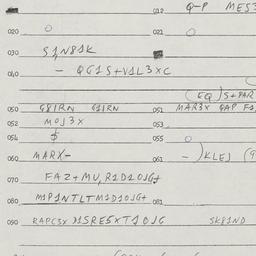 012 Q-P MES3
020 O 021 O
030 S1N81K
040 - QG1S+V1L3XC
(EQ)S+PAR
050 G81RN G1RN 051 MAR3X GAP FA
052 MOJ3X 053
054 $ 055 O
060 MARX- 061 -)KLEJ (9
070 FAZ+MU, R1D10JG+
080 M1P1NTLTM1D10JG+ 081
090 RAPC3X )1SRE5XT10JG SK81ND